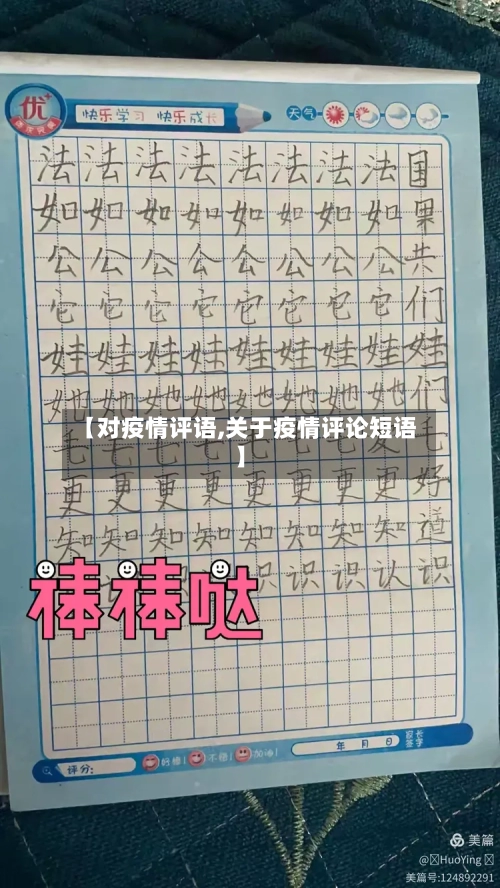 优
快乐学习 快乐成长
天气
法法法法法法法法国
如如如如如如如如果
公公公公公公公公共
它它它它它它它它们
娃娃娃娃娃娃娃娃娃
她她她她她她她她们
【对疫情评语,关于疫情评论短语
】
毛
更更更更更更更更好
知知知知知知知知道
识识识认识
棒棒哒
评分:
好棒!
不错!
加油!
年 月 日
家长
签字
美篇
@HuoYing
美篇号:124892291